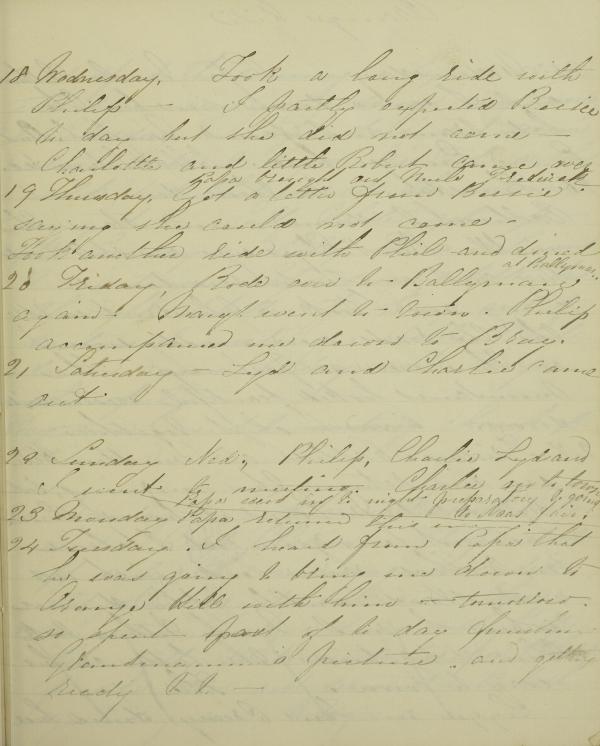 18 Wednesday. Took a long ride with
Philip — I partly expected Bessie
to day but she did not come —
Charlotte and little Robert came over
Papa brought out Uncle Frederick
19 Thursday. Got a letter from Bessie
saying she could not come —
Took another ride with Phil and dined
at Ballyman
20 Friday, Rode over to Ballyman
again — went to town. Philip
accompanied me down to Bray.
21 Saturday — Lyd and Charlie came
out
22 Sunday Ned, Philip, Charlie Lyd and
I went to meeting. Charlie to town
Papa went to night preparatory to going
to Naas fair.
23 Monday Papa returned this
24 Tuesday. I heard from Papa that
he was going to bring me down to
Grange Hill with him — tomorrow.
so spent part of to day
Grandmamma's picture. and getting
ready to —